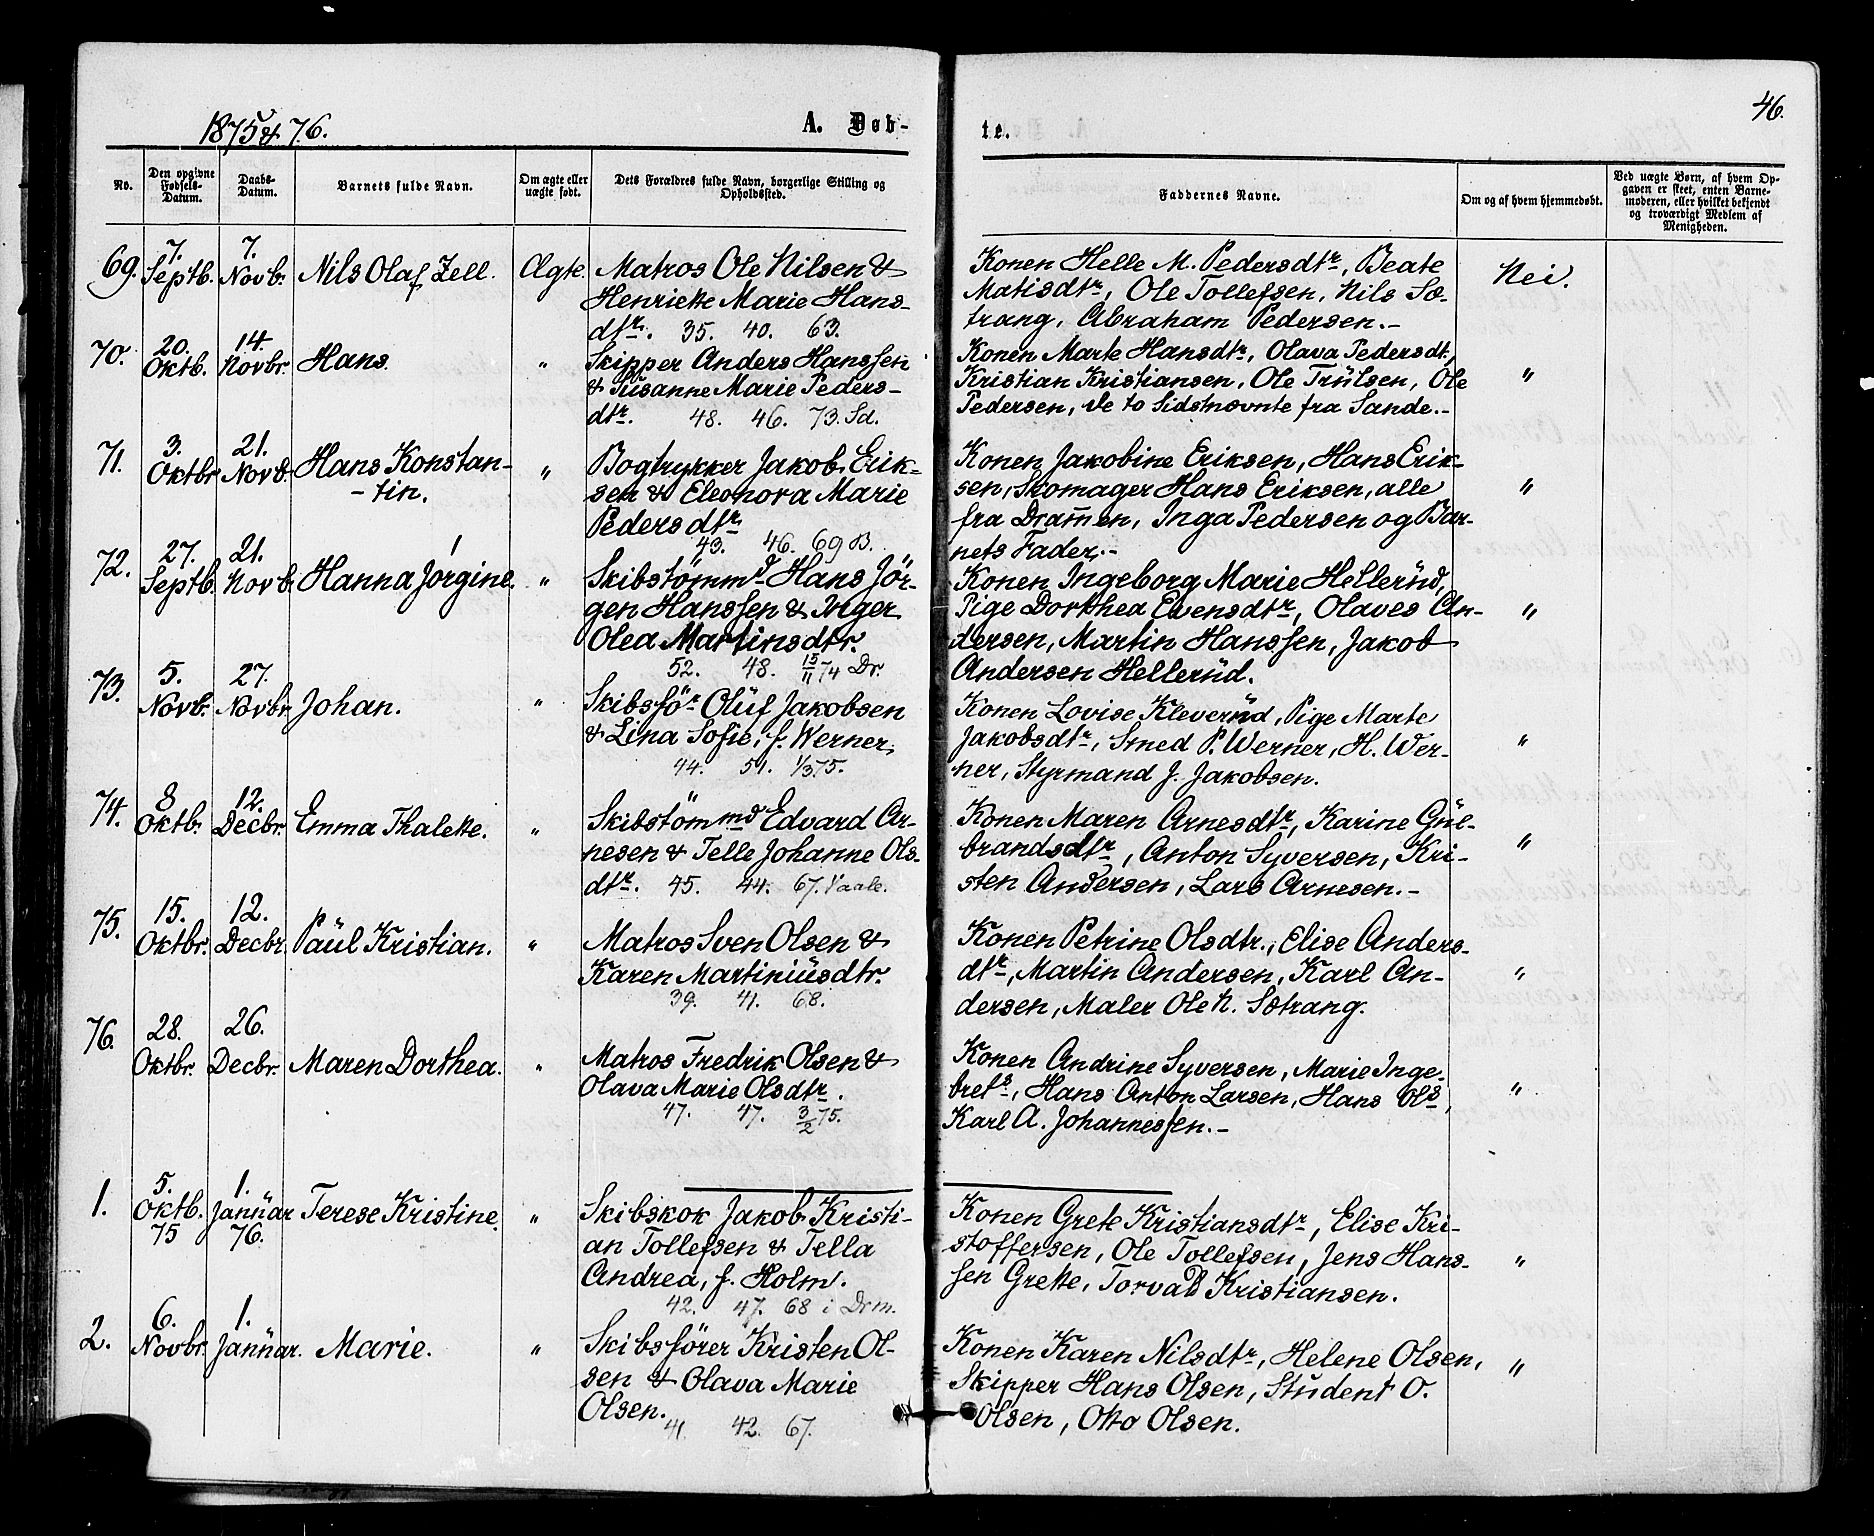 1875 & 76.
A. Døb-
te.
46.
No.
Den opgivne Fødsels-Datum.
Daabs-Datum.
Barnets fulde Navn.
Om ægte eller uægte født.
Dets Forældres fulde Navn, borgerlige Stilling og Opholdssted.
Faddernes Navne.
Om og af hvem hjemmedøbt.
Ved uægte Børn, af hvem Op-
gaven er skeet, enten Barne-
moderen, eller hvilket bekjendt
og troværdigt Medlem af
Menigheden.
69. 7. Septb. 7. Novb. Nils Olaf Zell. Ægte. Matros Ole Nilsen &
Henriette Marie Hans-
dtr. 35. 40. 63.
Konen Helle M. Pedersdtr, Beate
Matisdtr, Ole Tollefsen, Nils Sæ-
trang, Abraham Pedersen.-
Nei.
70. 20. Oktb. 14. Novbr. Hans. " Skipper Anders Hanssen
& Susanne Marie Peders-
dtr. 48. 46. 73. Sd.
Konen Marte Hansdtr, Olava Pedersdt.,
Kristian Kristiansen, Ole Trulsen, Ole
Pedersen, de to Sidstnævnte fra Sande.-
"
71. 3. Oktbr 21. Novb. Hans Konstan-
-tin. " Bogtrykker Jakob Erik-
sen & Eleonora Marie
Pedersdtr.
43. 46. 69 B.
Konen Jakobine Eriksen, Hans Erik-
sen, Skomager Hans Eriksen, alle
fra Dram̄en, Inga Pedersen og Bar-
nets Fader.-
"
72. 27. Septb. 21. Novb. Hanna Jørgine. " Skibstømmd Hans Jör-
gen Hanssen & Inger
Olea Martinsdtr.
52. 48. 15/11 74 Dr.
Konen Ingeborg Marie Hellerud,
Pige Dorthea Evensdtr, Olaves An-
dersen, Martin Hanssen, Jakob
Andersen Hellerud.
"
73. 5. Novb. 27. Novbr Johan. " Skibsför Oluf Jakobsen
& Lina Sofie, f. Werner.
44. 51. 1/3 75.
Konen Lovise Kleverud, Pige Marte
Jakobsdtr, Smed P. Werner, H. Wer-
ner, Styrmand J. Jakobsen.
"
74. 8 Oktb. 12. Decbr. Emma Thalette. " Skibstömmd Edvard Ar-
nesen & Telle Johanne Ols-
dtr. 45. 44. 67. Vaale.
Konen Maren Arnesdtr, Karine Gul-
brandsdtr, Anton Syversen, Kri-
sten Andersen, Lars Arnesen.-
"
75. 15. Oktbr. 12. Decbr. Paul Kristian. " Matros Sven Olsen &
Karen Martiniusdtr.
39. 41. 68.
Konen Petrine Olsdtr., Elise Anders-
dtr, Martin Andersen, Karl An-
dersen, Maler Ole N. Sætrang.
"
76. 28. Oktbr. 26. Decbr. Maren Dorthea. " Matros Fredrik Olsen &
Olava Marie Olsdtr.
47. 47. 3/2 75.
Konen Andrine Syversen, Marie Inge-
brets, Hans Anton Larsen, Hans Ols,
Karl A. Johannessen.-
"
1. 5. Oktb. 75 1. Januar 76. Terese Kristine. " Skibskok Jakob Kristi-
an Tollefsen & Tella
Andrea, f. Holm.
42. 47. 68 i Drm.
Konen Grete Kristiansdtr, Elise Kri-
stoffersen, Ole Tollefsen, Jens Hans-
sen Grette, Torvald Kristiansen.
"
2. 6. Novbr. 1. Januar. Marie. " Skibsförer Kristen Ol-
sen & Olava Marie
Olsen. 41. 42. 67.
Konen Karen Nilsdtr, Helene Olsen,
Skipper Hans Olsen, Student O.
Olsen, Otto Olsen.
"